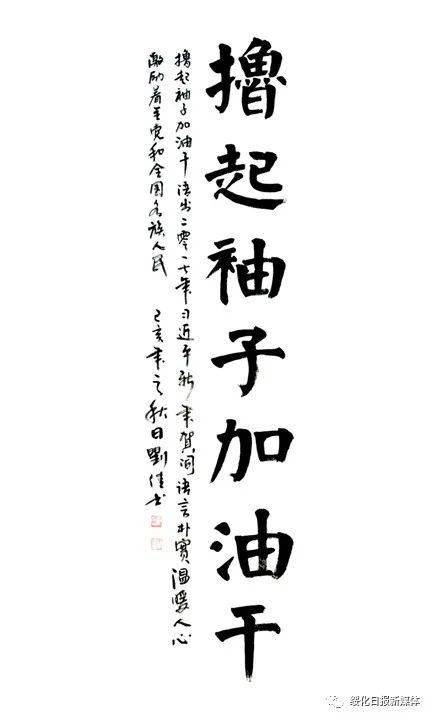 撸起袖子加油干
撸起袖子加油干语出二零一七年习近平新年贺词语言朴實温暖人心
激励着全党和全国各族人民 己亥年之秋日劉佳书
绥化日报新媒体